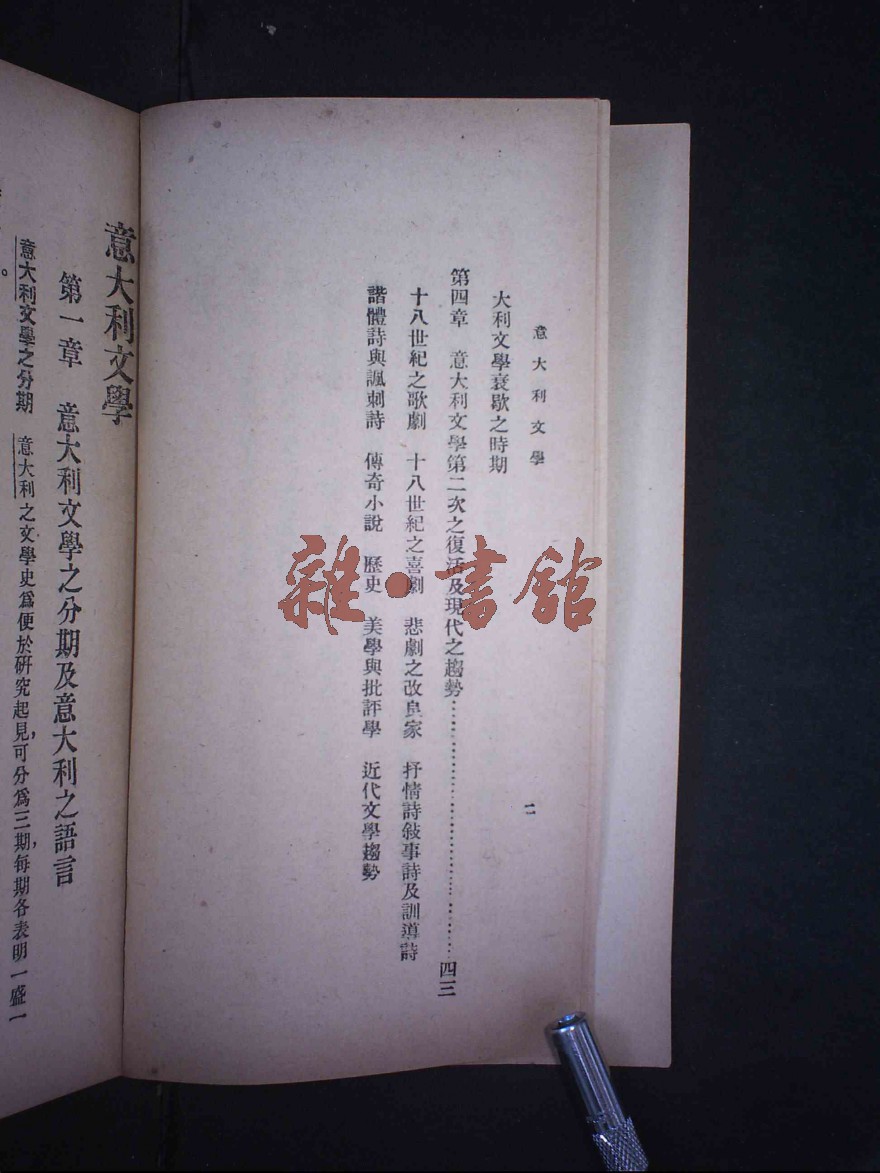 意大利文學
二
大利文學衰歇之時期
第四章 意大利文學第二次之復活及現代之趨勢……四三
十八世紀之歌劇 十八世紀之喜劇 悲劇之改良家 抒情詩敍事詩及訓導詩
諧體詩與諷刺詩 傳奇小說 歷史 美學與批評學 近代文學趨勢
意大利文學
第一章 意大利文學之分期及意大利之語言
意大利文學之分期 意大利之文學史爲便於研究起見,可分爲三期,每期各表明一盛一
雜·書館